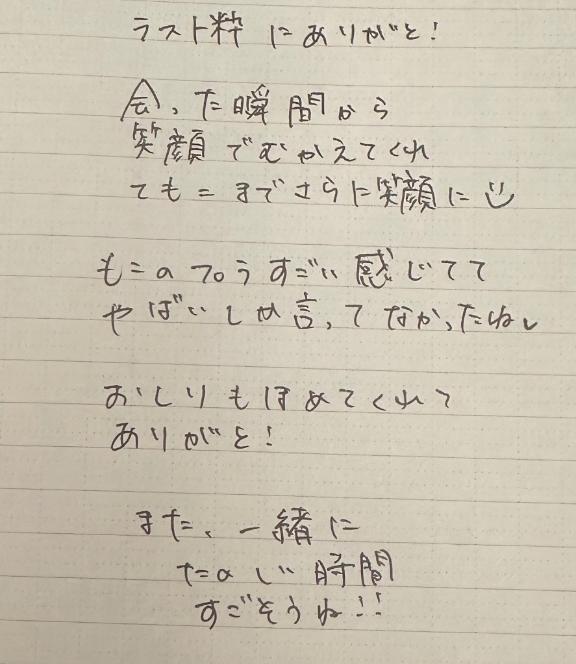 ラスト粋にありがと!
会った瞬間から
笑顔でむかえてくれ
てもこまでさらに笑顔に
もこaフ。うすごい感じてて
やばいしか言ってなかったね
おしりもほめてくれて
ありがと!
また、一緒に
たのしい時間
すごそうね!!